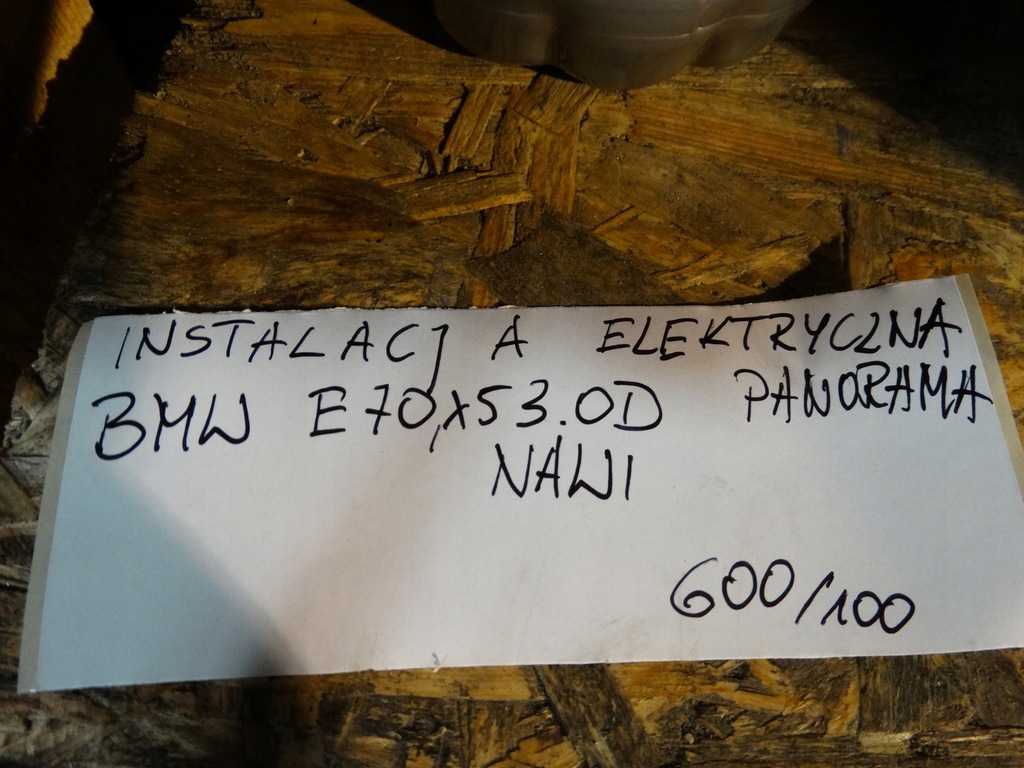 INSTALACJA ELEKTRYCZNA
BMW E70,X53.0D PANORAMA
NAWI
600/100